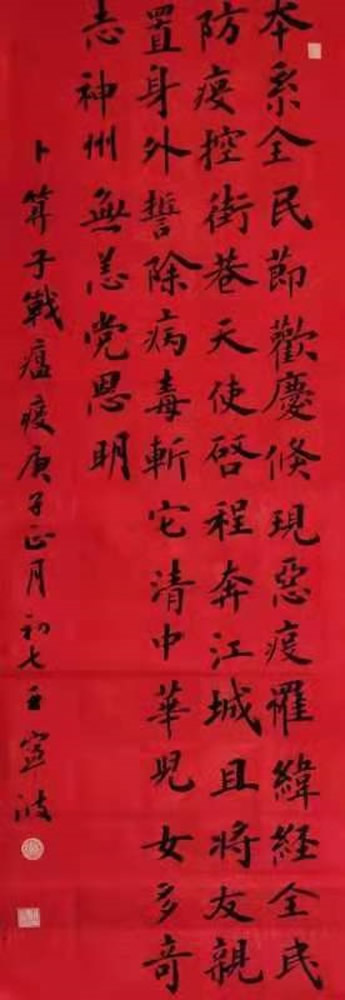 本系全民節歡慶倏現惡疫罹緯經全民
防疫控街巷天使啓程奔江城且將友親
置身外誓除病毒斬它清中華兒女多奇
志神州無恙党恩明
卜算子戰瘟疫庚子正月初七王寧波